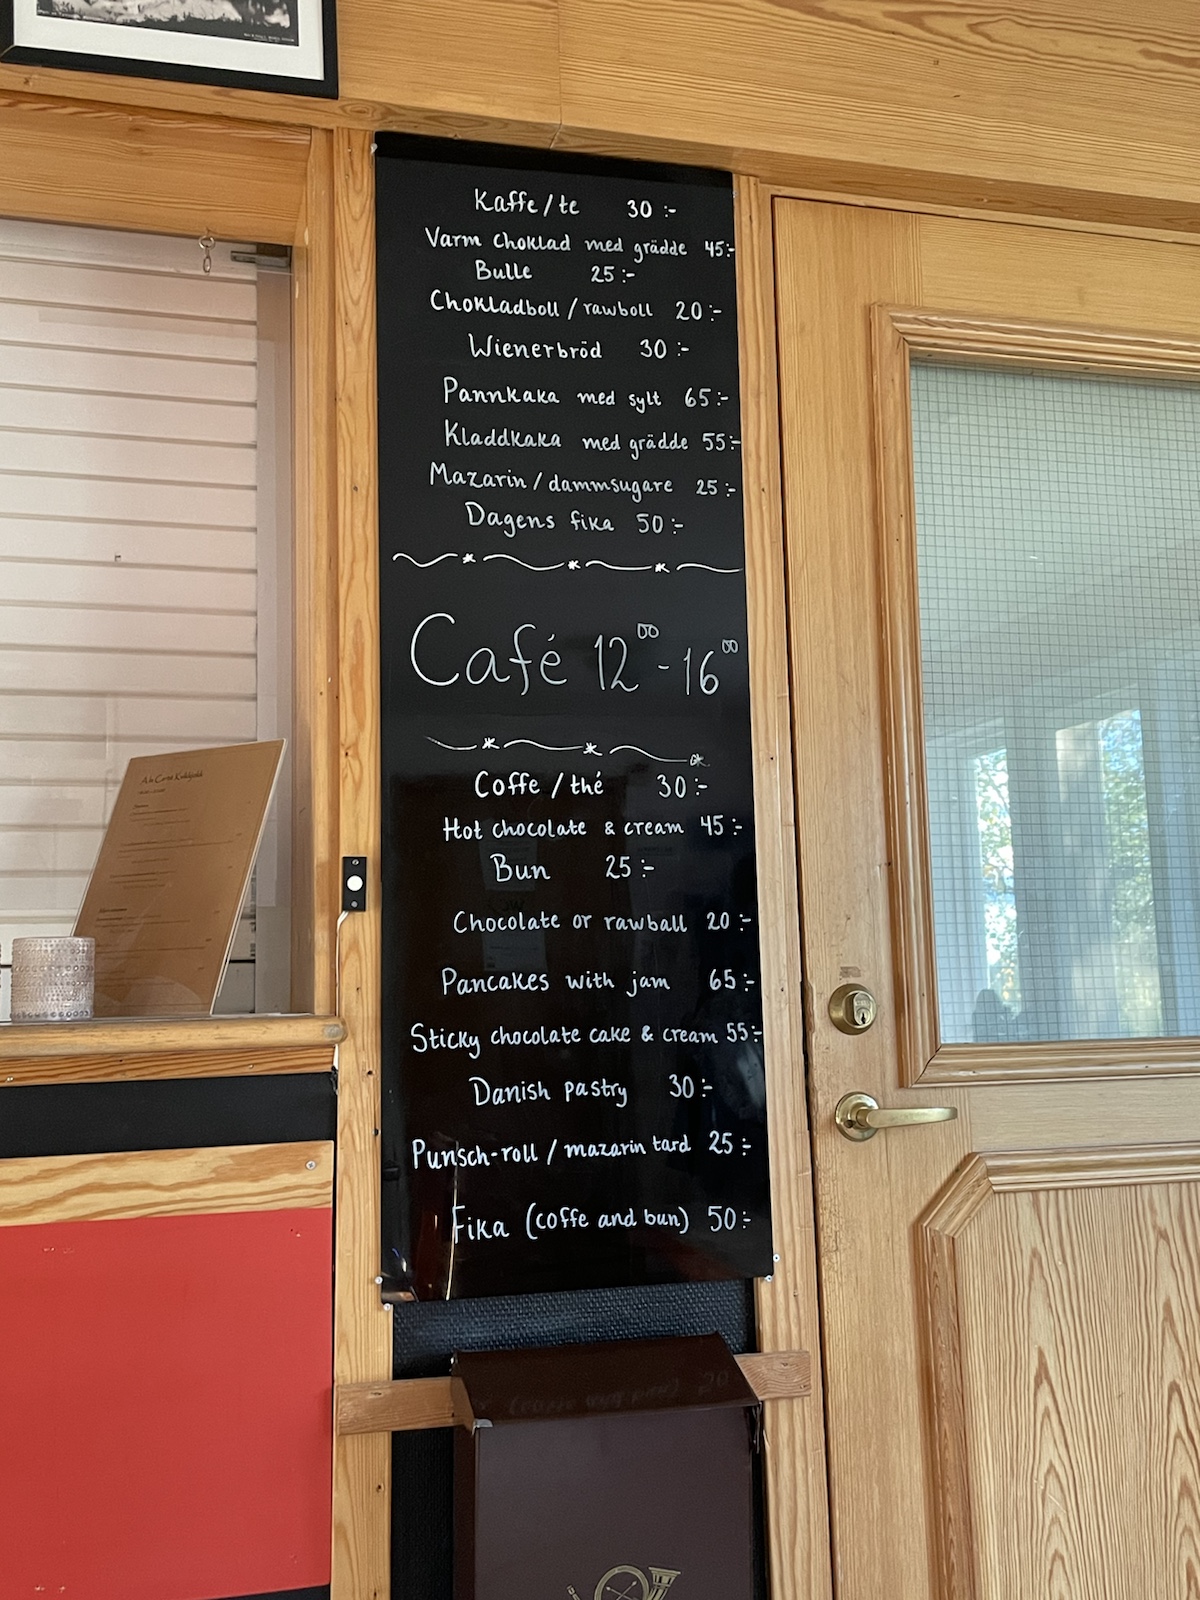 Kaffe/te 30:-
Varm choklad med grädde 45:-
Bulle 25:-
Chokladboll/rawboll 20:-
Wienerbröd 30:-
Pannkaka med sylt 65:-
Kladdkaka med grädde 55:-
Mazarin/dammsugare 25:-
Dagens fika 50:-
Café 12⁰⁰-16⁰⁰
Coffe/thé 30:-
Hot chocolate & cream 45:-
Bun 25:-
Chocolate or rawball 20:-
Pancakes with jam 65:-
Sticky chocolate cake & cream 55:-
Danish pastry 30:-
Punsch-roll/mazarin tard 25:-
Fika (coffe and bun) 50:-